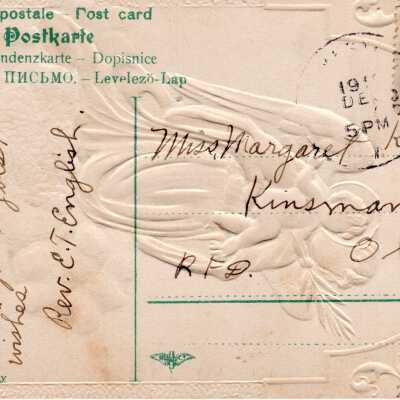 postale Post card
Postkarte
ndenzkarte – Dopisnice
ПИСЬМО. – Levelezö-Lap
wishes
Rev. E. T. English.
Miss. Margaret K
Kinsman
O
R.F.D.
19
DE
5 PM